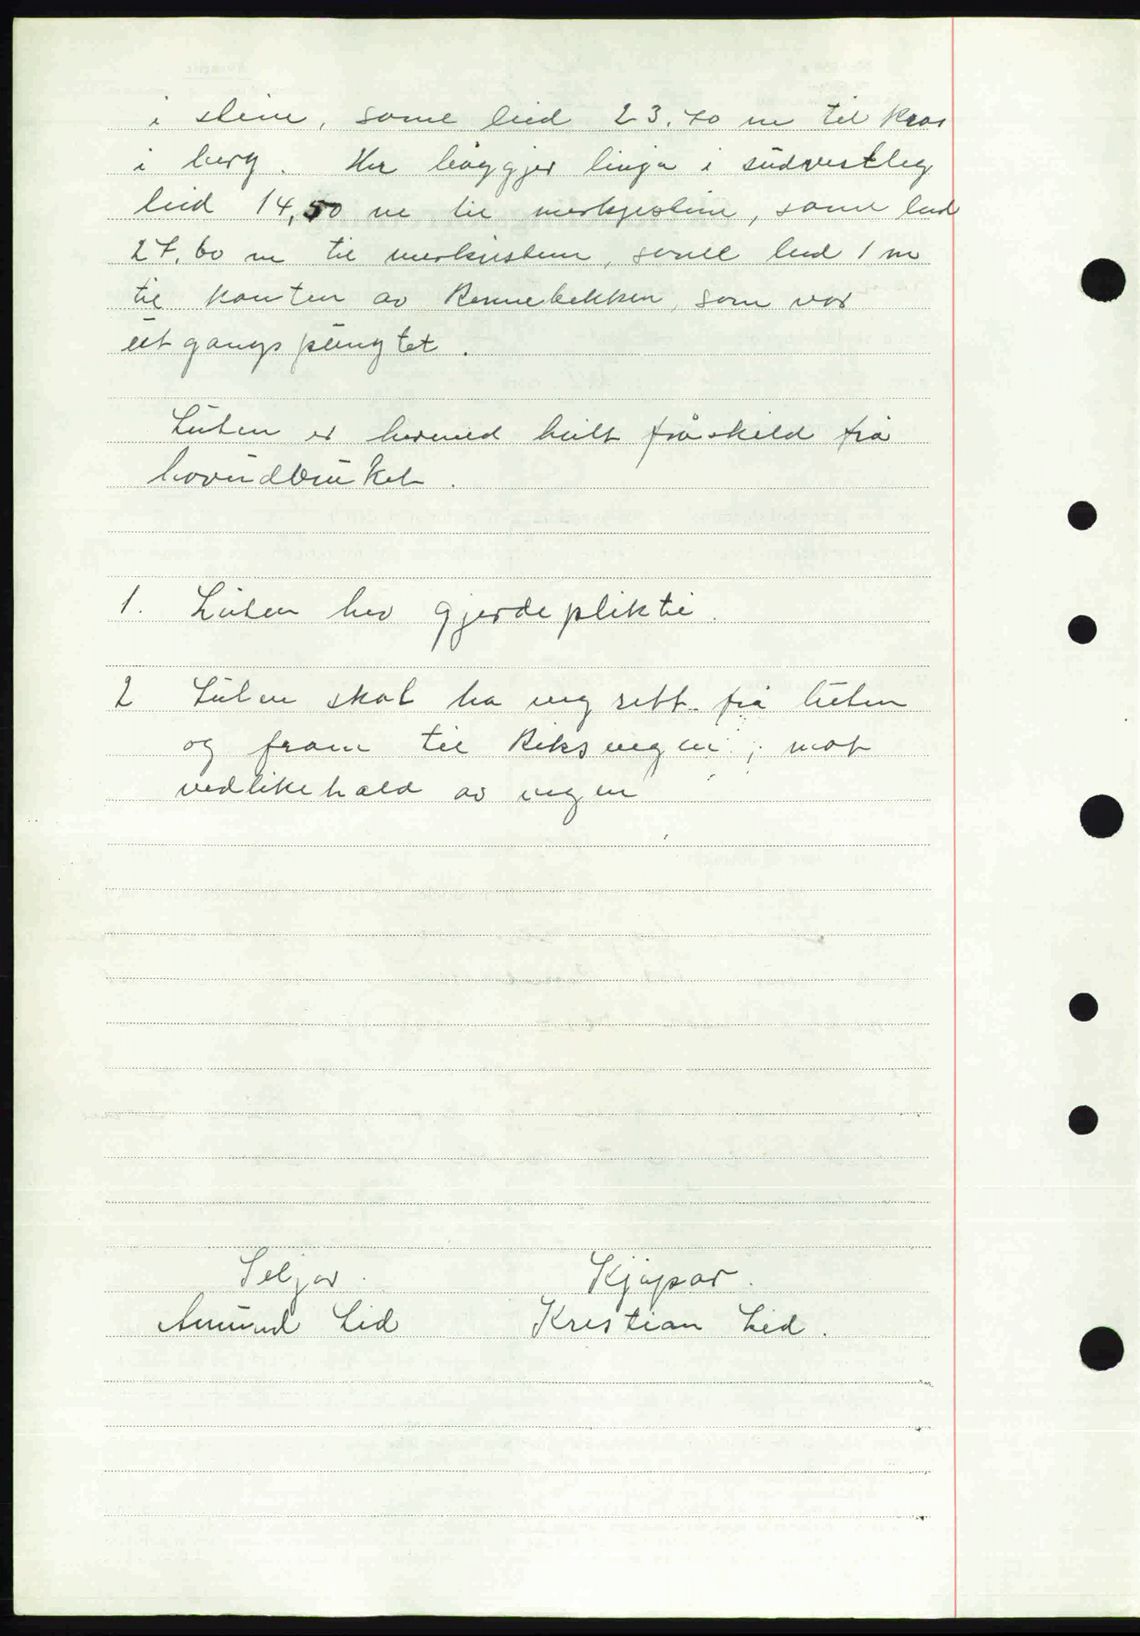 i stein, same leid 23.70 m til kros
i berg. Her bøygjer linja i südvestleg
leid 14,50 m til merkjestein, same leid
27.60 m til merkjestein, same leid 1 m
til kanten av Rennebekken, som var
ütgangspüngtet.
Lüten er hermed heilt fråskild frå
hovüdbrüket.
1. Lüten hev gjerdeplikti.
2 Lüten skal ha vegrett frå lüten
og fram til Riksvegen; mot
vedlikehald av vegen
Seljar. Kjøpar.
Amünd Lid Kristian Lid.